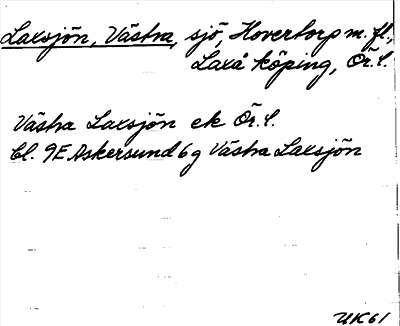 Laxsjön, Västra, sjö, Hovertorp m. fl,
Laxå köping, Ör. l.
Västra Laxsjön ek Ör. l.
Bl. 9E Askersund 6g Västra Laxsjön
UK61